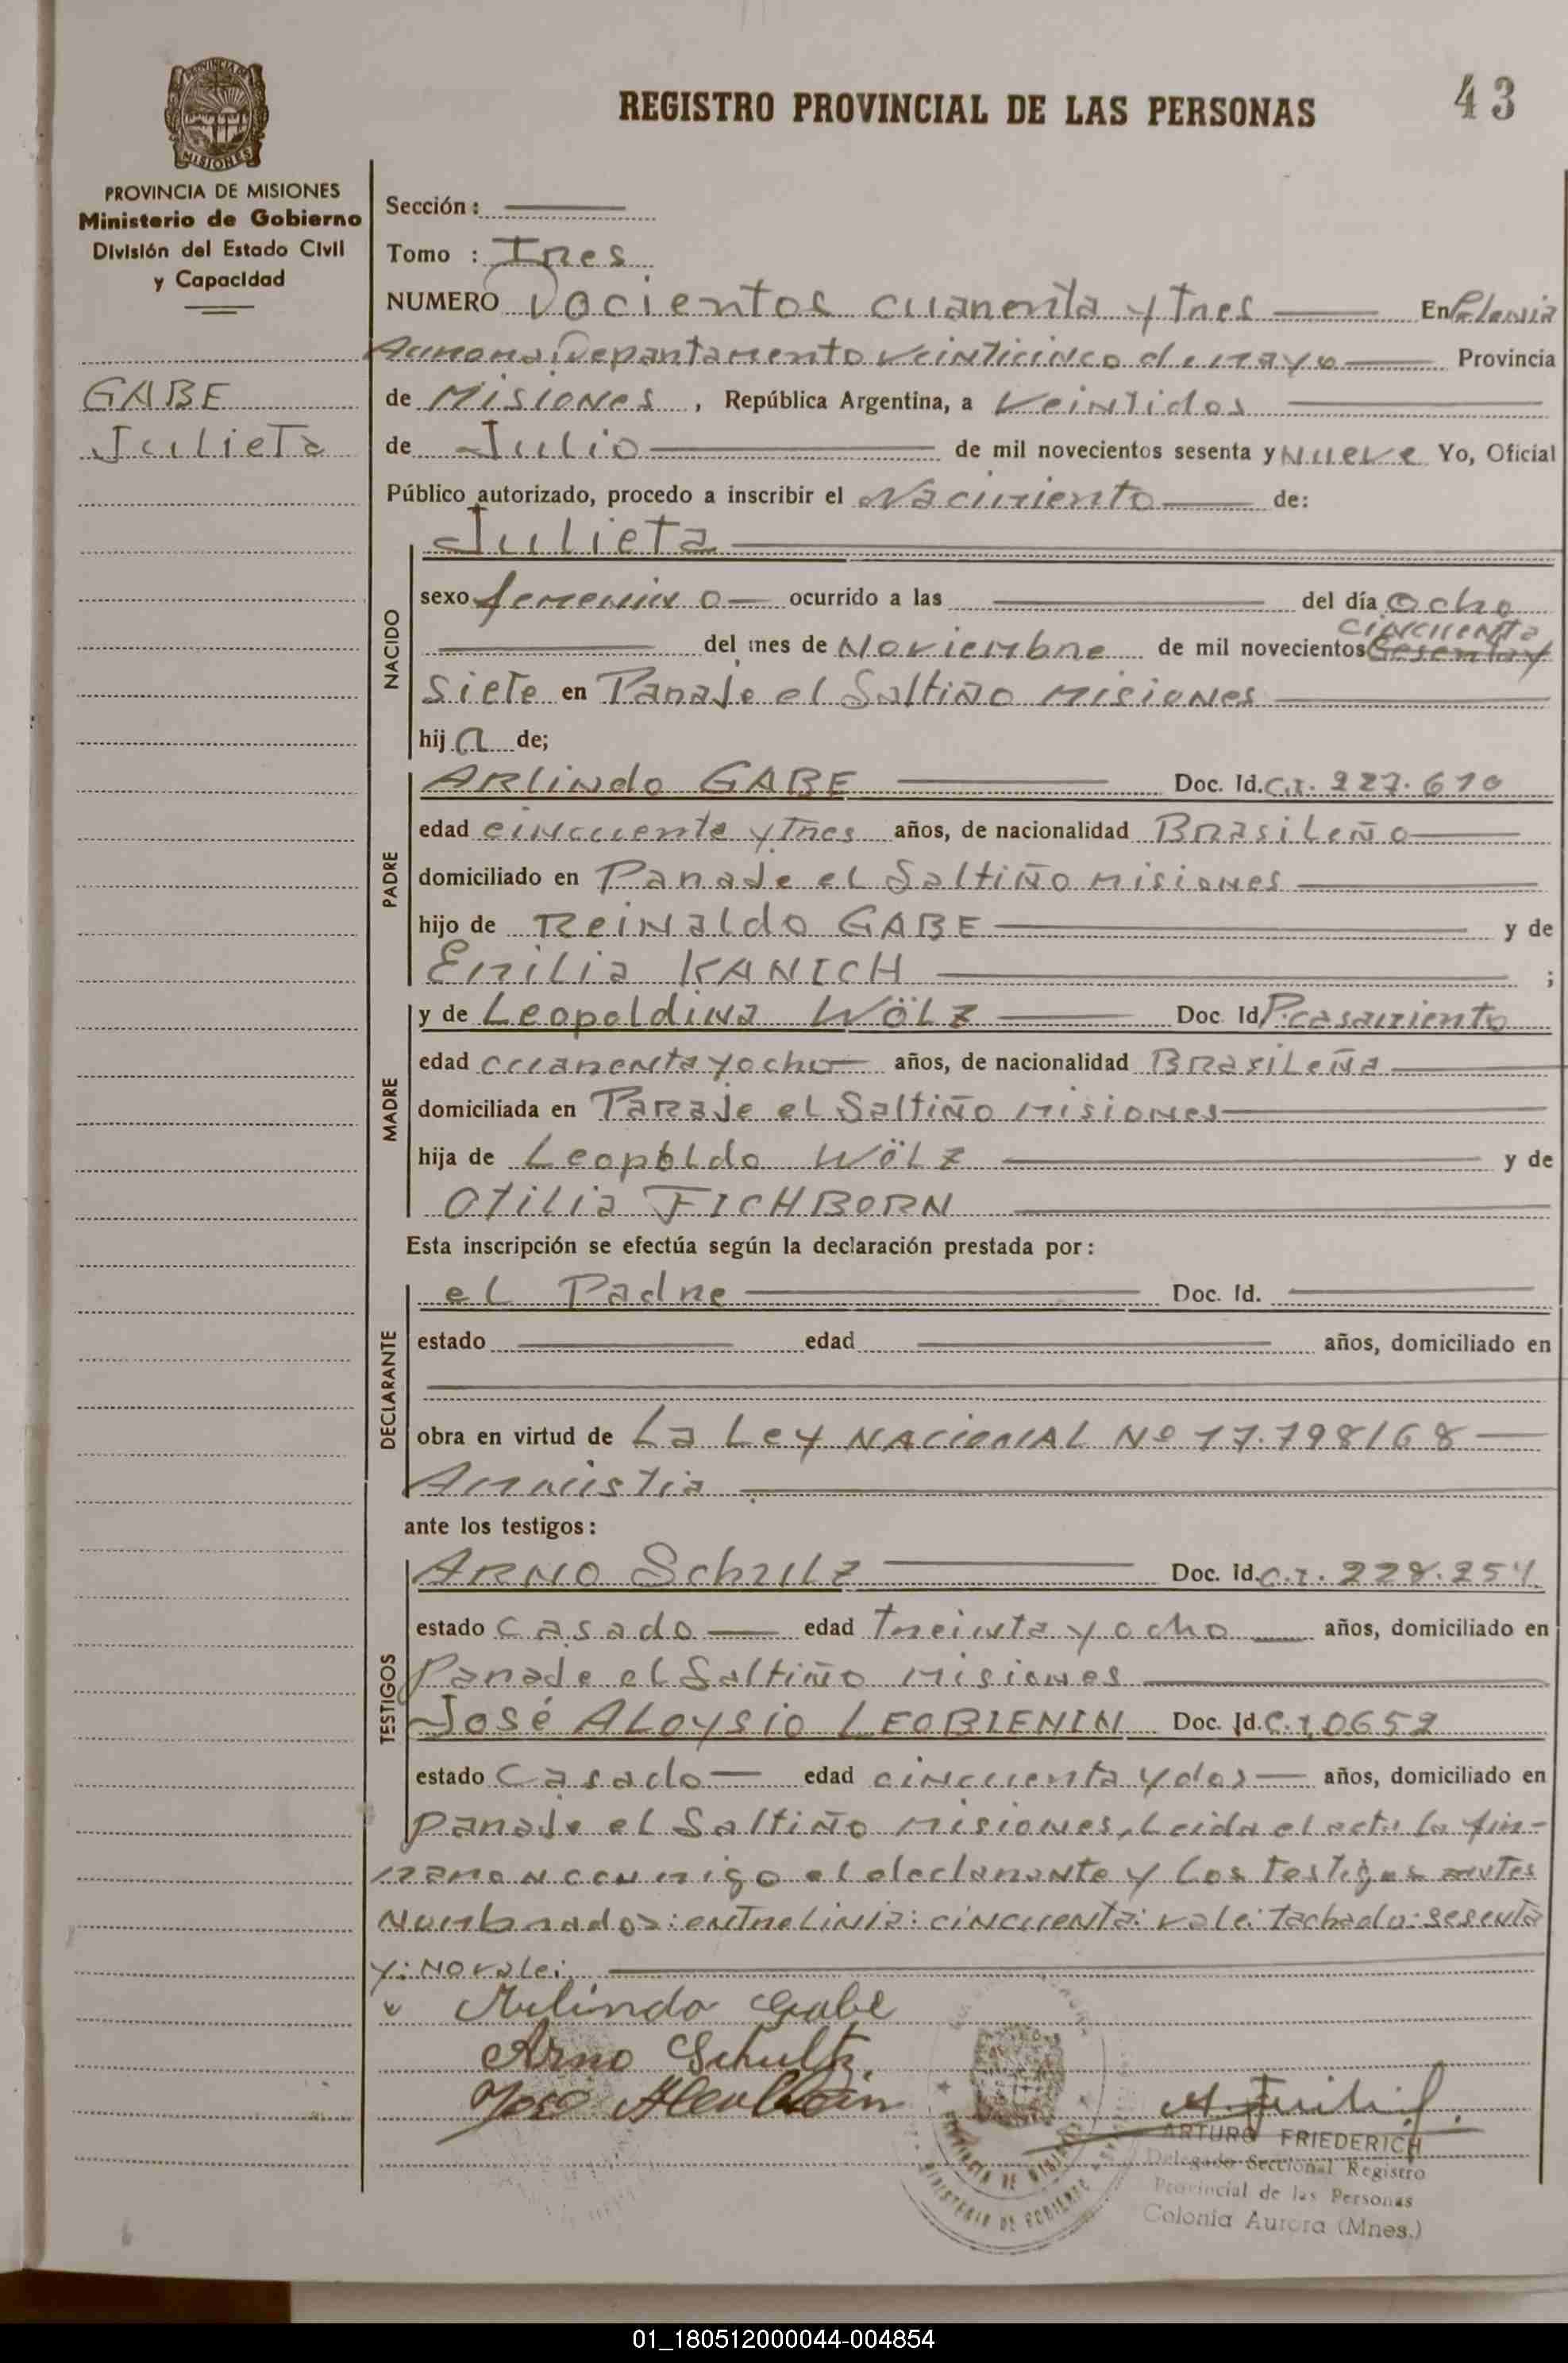 43
REGISTRO PROVINCIAL DE LAS PERSONAS
MISIONES
PROVINCIA DE MISIONES
Ministerio de Gobierno
División del Estado Civil
y Capacidad
GABE
Julieta
Sección:
Tomo : Tres
NUMERO Docientos cuarenta y tres En Colonia
Aurora Departamento Veinticinco de mayo Provincia
de Misiones, República Argentina, a Veintidos
de Julio de mil novecientos sesenta y Nueve Yo, Oficial
Público autorizado, procedo a inscribir el Nacimiento de:
NACIDO
Julieta
sexo femenino ocurrido a las del día Ocho
cincuenta
del mes de Noviembre de mil novecientos sesenta y
siete en Paraje el Saltiño Misiones
hija de;
PADRE
ARLindo GABE Doc. Id. C.I. 227.610
edad cincuenta y tres años, de nacionalidad Brasileño
domiciliado en Paraje el Saltiño Misiones
hijo de Reinaldo GABE y de
Emilia KANICH ;
MADRE
y de Leopoldina WÖLZ Doc Id P. casamiento
edad cuarenta y ocho años, de nacionalidad Brasileña
domiciliada en Paraje el Saltiño Misiones
hija de Leopoldo WÖLZ y de
Otilia FICHBORN
Esta inscripción se efectúa según la declaración prestada por:
DECLARANTE
el Padre Doc. Id.
estado edad años, domiciliado en
obra en virtud de La Ley NACIONAL Nº 17.798/68
Amnistia
ante los testigos:
TESTIGOS
ARNO Schulz Doc. Id. C.I. 228.254
estado Casado edad treinta y ocho años, domiciliado en
Paraje el Saltiño Misiones
José ALoysio LEOBLENIN Doc. Id. C.I. 0652
estado Casado edad cincuenta y dos años, domiciliado en
Paraje el Saltiño Misiones, Leida el acta la fir-
maron conmigo el declarante y los testigos antes
Nombrados: entrelinia: cincuenta: vale: tachado: sesenta
y: No vale:
Arlindo Gabe
Arno Schultz
José
ARTURO FRIEDERICH
Delegado Seccional Registro
Provincial de las Personas
Colonia Aurora (Mnes.)
PROVINCIA DE MISIONES
MINISTERIO DE GOBIERNO
01_180512000044-004854